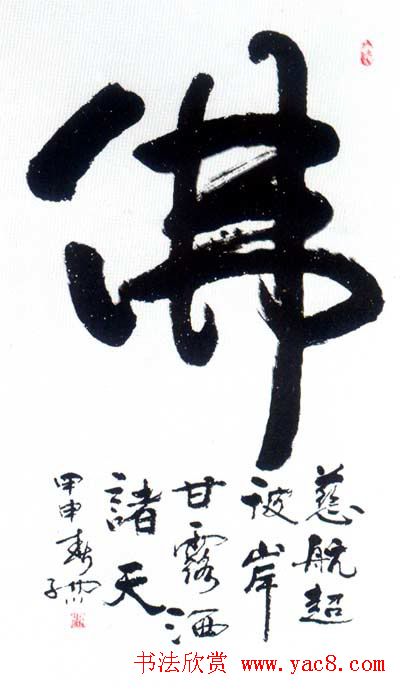 佛
慈航超
彼岸
甘露洒
諸天
甲申春
书法欣赏 www.yac8.com